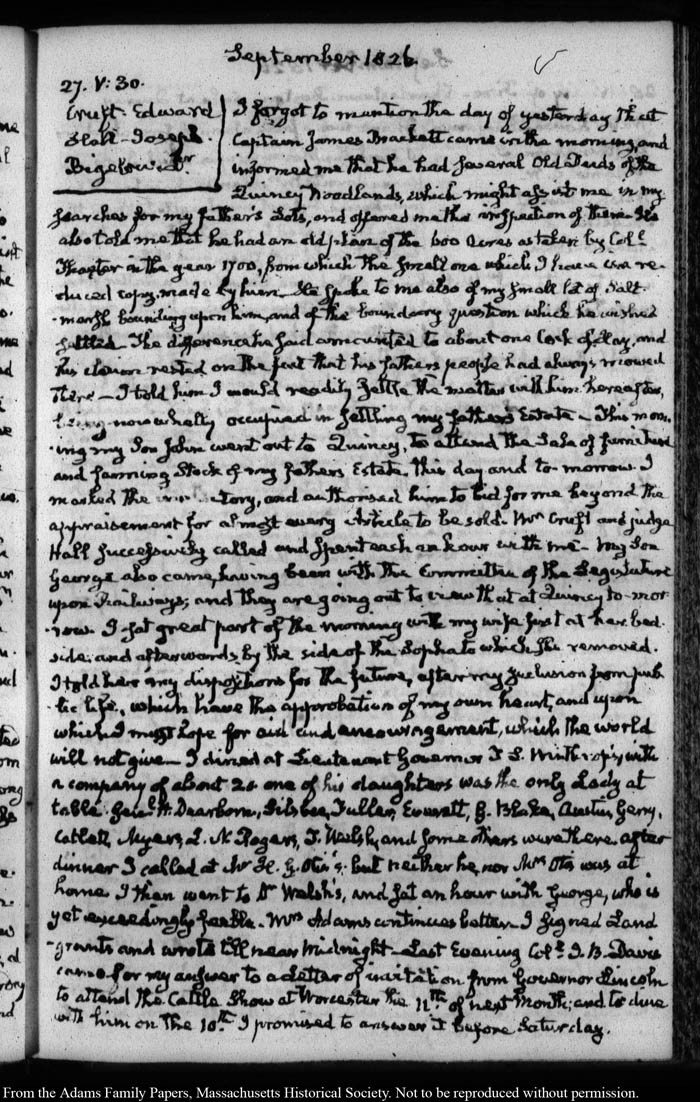 September 1826.
27. V: 30.
Cruft. Edward
Hall. Joseph.
Bigelow
I forgot to mention the day of yesterday that
Captain James Brackett came in the morning, and
informed me that he had several Old Deeds of the
Quincy Woodlands, which might assist me in my
searches for my father's Lots, and offered me the inspection of them. He
also told me that he had an old plan of the 600 Acres as taken by Coll.
Thaxter in the year 1700, from which the small one which I have was re-
duced copy, made by him. He spoke to me also of my small lot of Salt-
marsh bounding upon him, and of the boundary question which he wished
settled. The difference he said amounted to about one Cock of Hay, and
his claim rested on the fact that his father's people had always mowed
there—I told him I would readily settle the matter with him hereafter,
being now wholly occupied in settling my father's Estate—This morn-
ing my Son John went out to Quincy, to attend the Sale of furniture
and farming Stock of my father's Estate, this day and to-morrow. I
marked the and authorised him to bid for me beyond the
appraisement for almost every Article to be sold. Mr Cruft and judge
Hall successively called and spent each an hour with me—My Son
George also came, having been with the Committee of the Legislature
upon Railways; and they are going out to view that at Quincy to-mor-
row. I sat great part of the morning with my wife first at her bed-
side, and afterwards by the side of the Sopha to which she removed.
I told her my dispositions for the future, after my seclusion from pub-
lic life, which have the approbation of my own heart, and upon
which I must hope for aid and encouragement, which the world
will not give—I dined at Lieutenant Governor T. L. Winthrop's, with
a company of about 20 one of his daughters was the only Lady at
table. Genl. H. Dearborn, Silsbee, Fuller, Everett, Blake, Austin, Gerry,
Catlett, Myers, Rogers, T. Welsh, and some others were there. after
dinner I called at Mr H. G. Otis's. but neither he, nor Mrs Otis was at
home. I then went to Dr Welsh's, and sat an hour with George, who is
yet exceedingly feeble. Mrs Adams continues better—I signed Land
-grants and wrote till near Midnight—Last Evening Coll. I. P. Davis
came for my answer to a Letter of invitation from Governor Lincoln
to attend the Cattle Show at Worcester the 11th. of next Month; and to dine
with him on the 10th. I promised to answer it before Saturday.
From the Adams Family Papers, Massachusetts Historical Society. Not to be reproduced without permission.